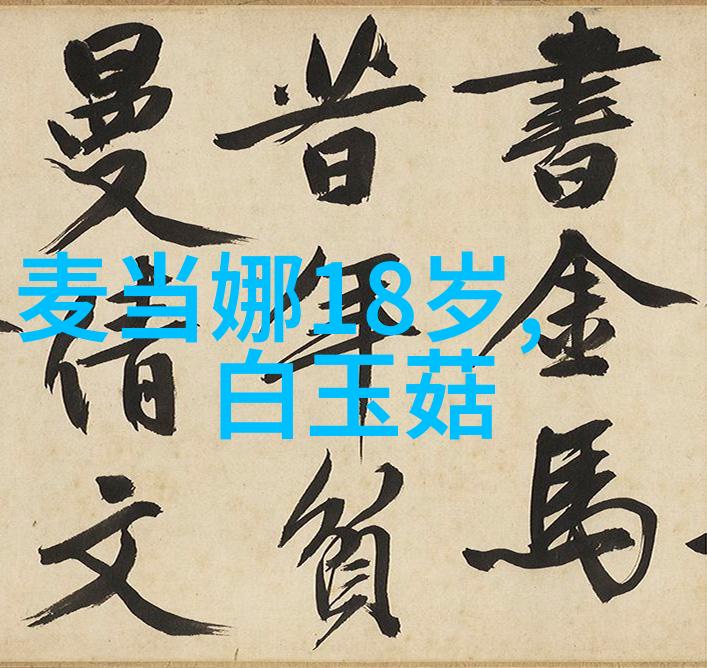 書金馬
昔年
曼倩文
麦当娜18岁，
白玉菇